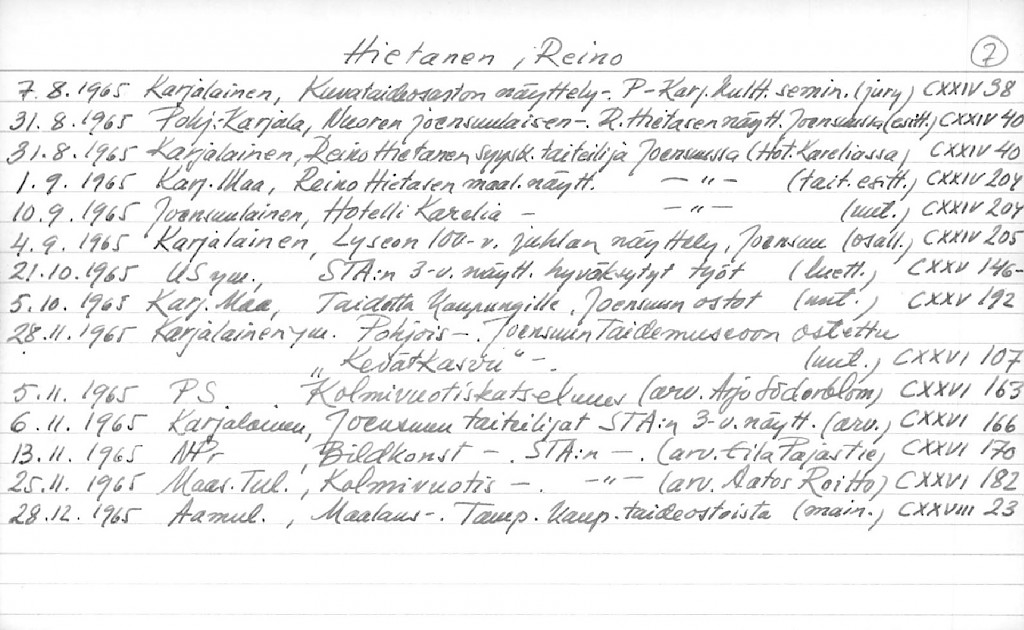 Hietanen, Reino 7
7.8.1965 Karjalainen, Kuvataideosaston näyttely-. P-Karj. kultt. semin. (jury) CXXIV 38
31.8.1965 Pohj. Karjala, Nuoren joensuulaisen-. R. Hietasen näytt. Joensuussa (esitt.) CXXIV 40
31.8.1965 Karjalainen, Reino Hietanen syysk. taiteilija Joensuussa (Hot. Kareliassa) CXXIV 40
1.9.1965 Karj. Maa, Reino Hietasen maal. näytt. — " — (tait. esitt.) CXXIV 204
10.9.1965 Joensuulainen, Hotelli Karelia - — " — (uut.) CXXIV 204
4.9.1965 Karjalainen, Lyseon 100-v. juhlan näyttely, Joensuu (osall.) CXXIV 205
21.10.1965 US ym., STA:n 3-v. näytt. hyväksytyt työt (luett.) CXXV 146-
5.10.1965 Karj. Maa, Taidetta kaupungille, Joensuun ostot (uut.) CXXV 192
28.11.1965 Karjalainen ym. Pohjois-. Joensuun Taidemuseoon ostettu
"Kevätkasvu" -. (uut.) CXXVI 107
5.11.1965 PS Kolmivuotiskatselmus (arv. Arjo Söderblom) CXXVI 163
6.11.1965 Karjalainen, Joensuun taiteilijat STA:n 3-v. näytt. (arv.) CXXVI 166
13.11.1965 NPr, Bildkonst -. STA:n -. (arv. Eila Pajastie) CXXVI 170
25.11.1965 Maas. Tul., Kolmivuotis -. -"- (arv. Aatos Roitto) CXXVI 182
28.12.1965 Aamul., Maalaus-. Tamp. kaup. taideostoista (main.) CXXVIII 23